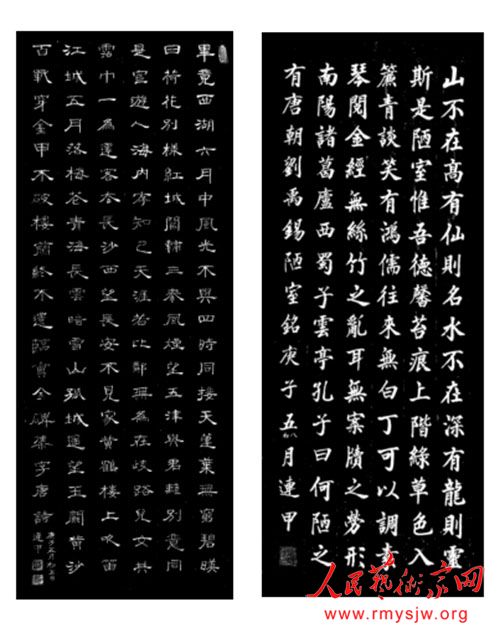 山不在高有仙則名水不在深有龍則靈
斯是陋室惟吾德馨苔痕上階綠草色入
簾青談笑有鴻儒往來無白丁可以調素
琴閱金經無絲竹之亂耳無案牘之勞形
南陽諸葛廬西蜀子雲亭孔子曰何陋之
有唐朝劉禹錫陋室銘庚子五月連甲
畢竟西湖六月中風光不與四時同接天蓮葉無窮碧暎
日荷花別樣紅城闕輔三秦風煙望五津與君離別意同
是宦遊人海内存知己天涯若比鄰無為在歧路兒女共
霑巾一為遷客去長沙西望長安不見家黃鶴樓上吹笛
江城五月落梅花青海長雲暗雪山孤城遥望玉關黃沙
百戰穿金甲不破樓蘭終不還臨曹全碑集字唐詩
連甲
人民艺术家网
www.rmysjw.org